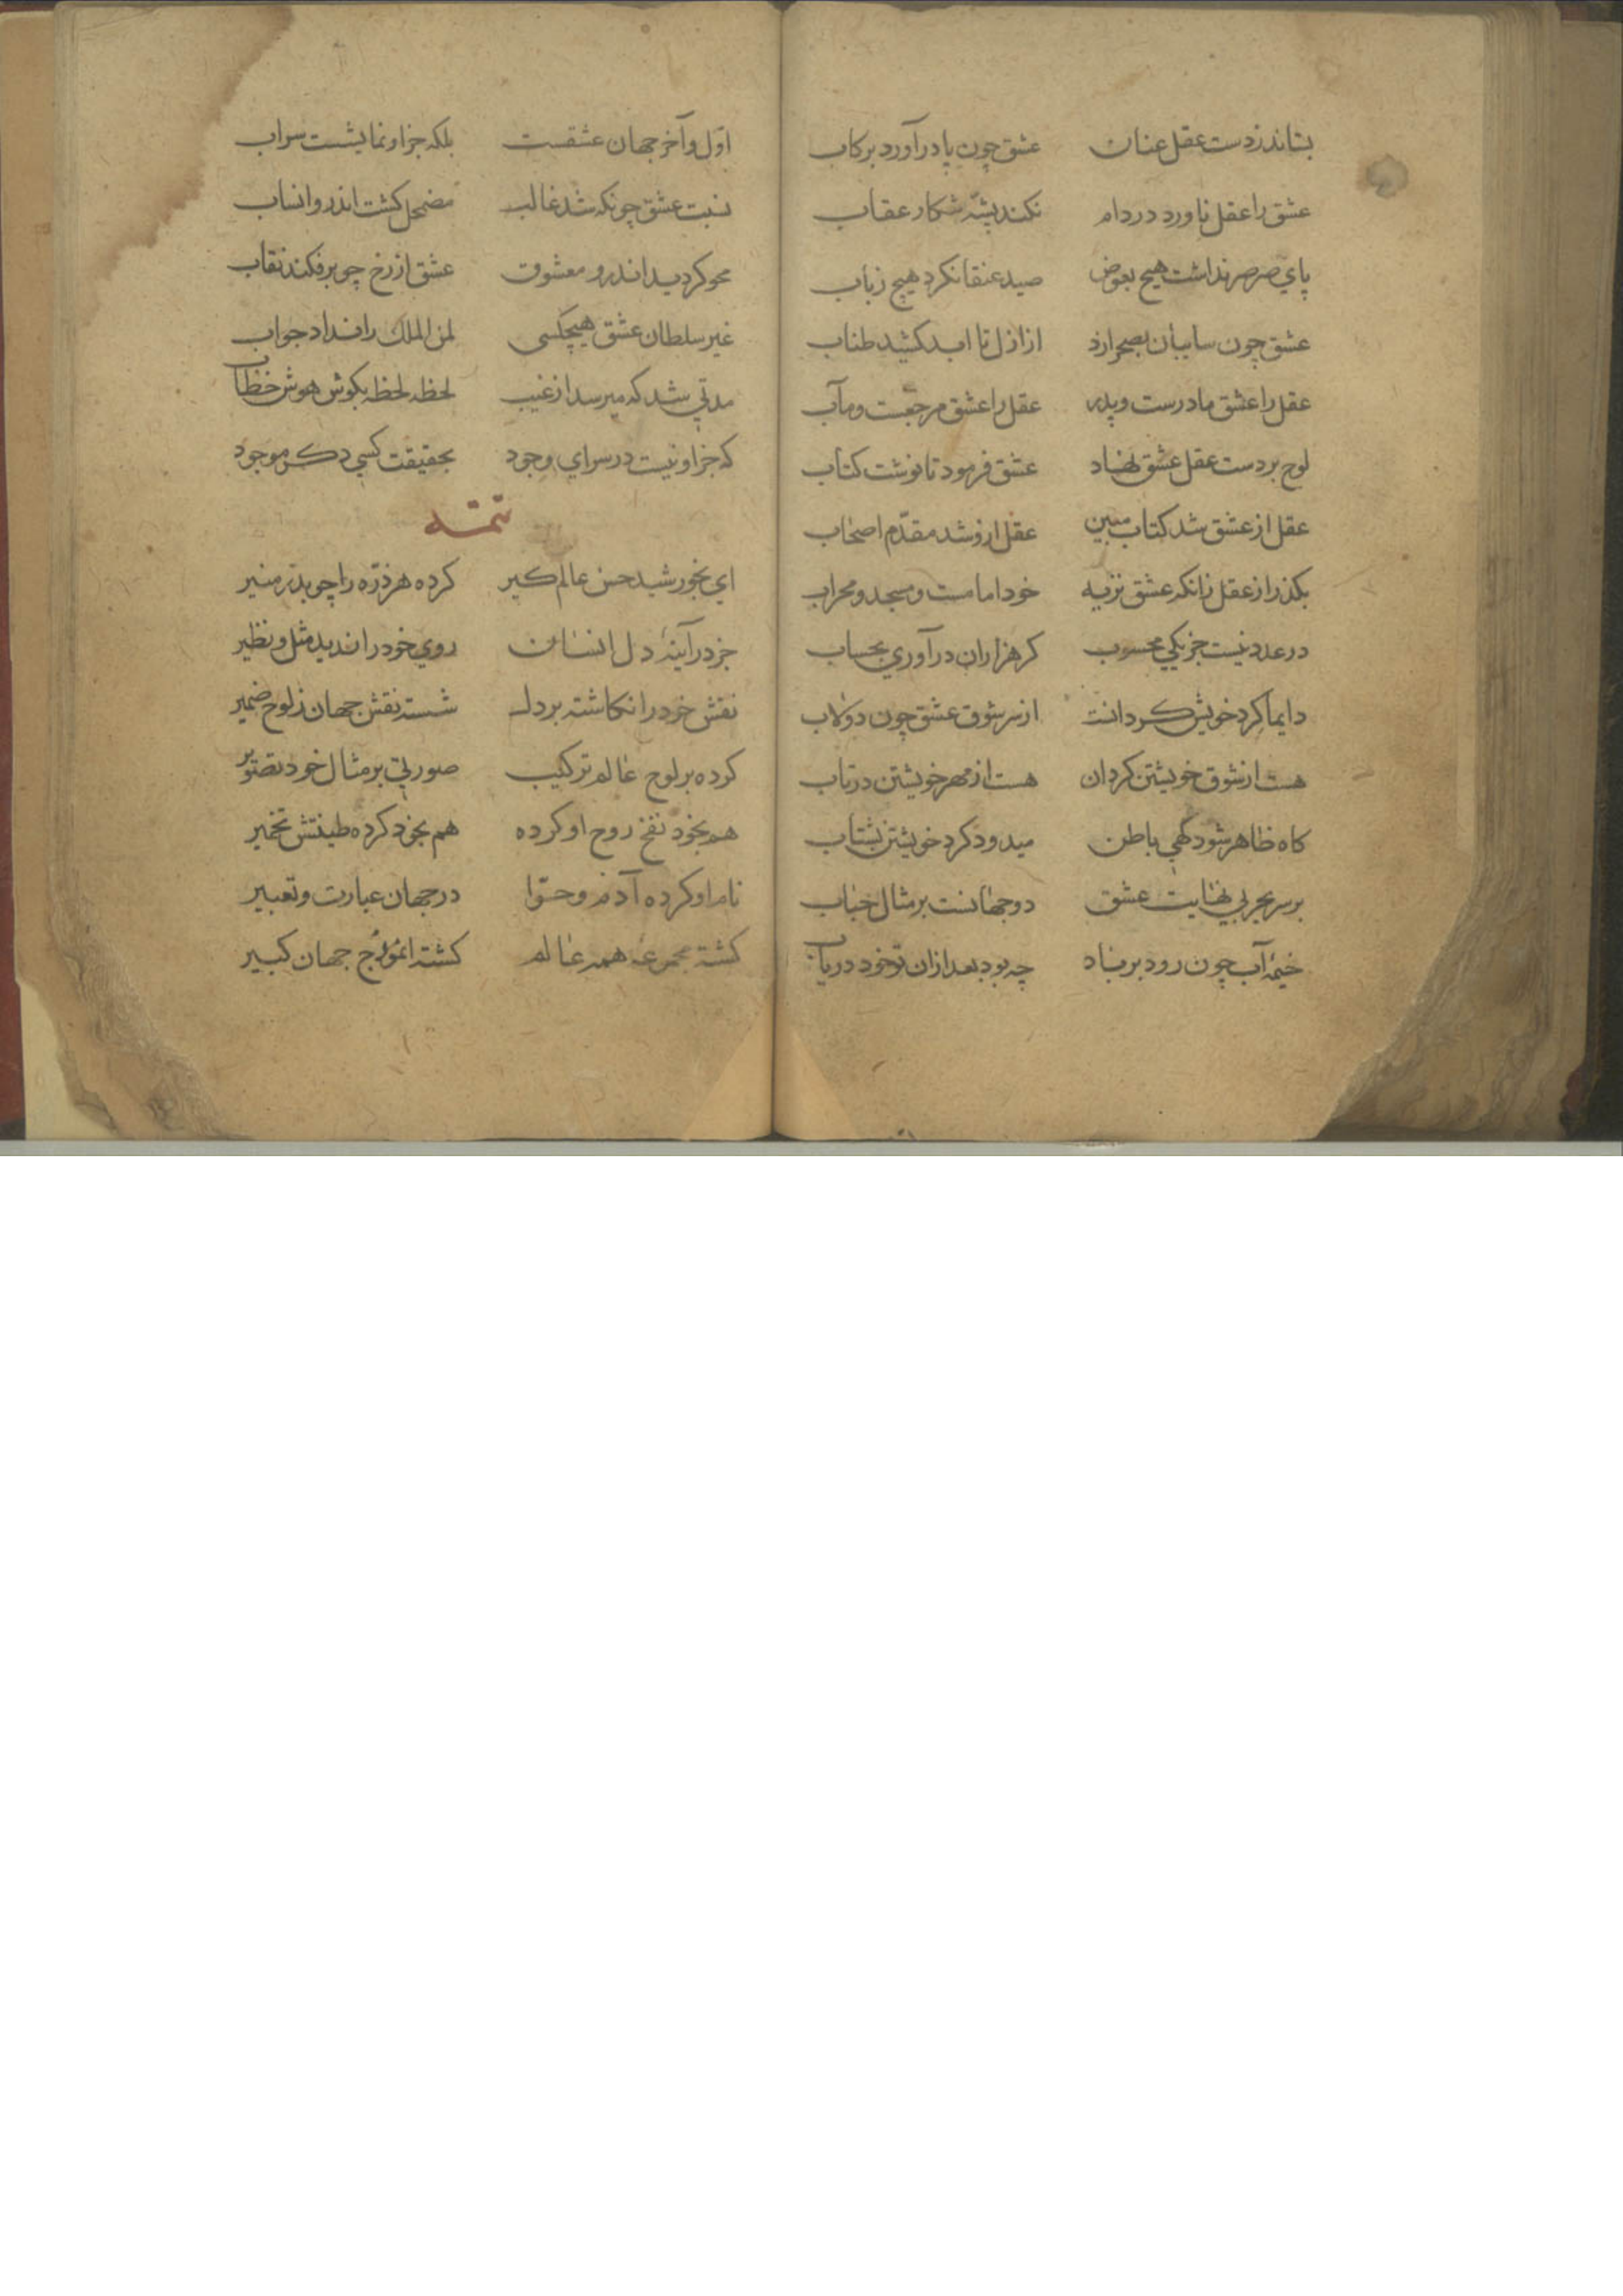 بستاند زدست عقل عنان عشق چون پا درآورد برکاب
عشق را عقل ناورد در دام نکند پشّه شکار عقاب
پاي صرصر نداشت هیچ بعوض صید عنقا نکرد هیچ ذباب
عشق چون سایبان بصحرا زد از ازل تا ابد کشید طناب
عقل را عشق مادرست و پدر عقل را عشق مرجعست و مآب
لوح بر دست عقل عشق نهاد عشق فرمود تا نوشت کتاب
عقل از عشق شد کتاب مبین عقل ازو شد مقدّم اصحاب
بکذر از عقل زانکه عشق نزیه خود امامست و مسجد و محراب
در عدد نیست جز یکي محسوب کر هزاران درآوري بحساب
دایماً کرد خویش کردانست از سر شوق عشق چون دولاب
هست از شوق خویشتن کردان هست از مهر خویشتن در تاب
کاه ظاهر شود کهي باطن میدود کرد خویشتن بشتاب
بر سر بحر بي نهایت عشق دو جهانست بر مثال حباب
خیمۀ آب چون رود بر باد چه بود بعد ازان تو خود دریاب
اوّل و آخر جهان عشقست بلکه جز او نمایشست سراب
نسبت عشق چونکه شد غالب مضمحل کشت اندرو انساب
محو کردید اندرو معشوق عشق از رخ چو برفکند نقاب
غیر سلطان عشق هیچکسی لمن الملک را نداد جواب
مدتي شد که میرسد از غیب لحظه لحظه بکوش هوش خطاب
که جز او نیست در سراي وجود بحقیقت کسي دکر موجود
تتمه
اي بخورشید حسن عالم کیر کرده هر ذرّه را چو بدر منیر
جز در آینۀ دل انسان روي خود را ندید مثل و نظیر
نقش خود را نکاشته بر دل شسته نقش جهان ز لوح ضمیر
کرده بر لوح عالم ترکیب صورتي بر مثال خود تصویر
هم بخود نفخ روح او کرده هم بخود کرده طینتش تخمیر
نام او کرده آدم و حوّا در جهان عبارت و تعبیر
کشته مجموعه همه عالم کشته انموذج جهان کبیر